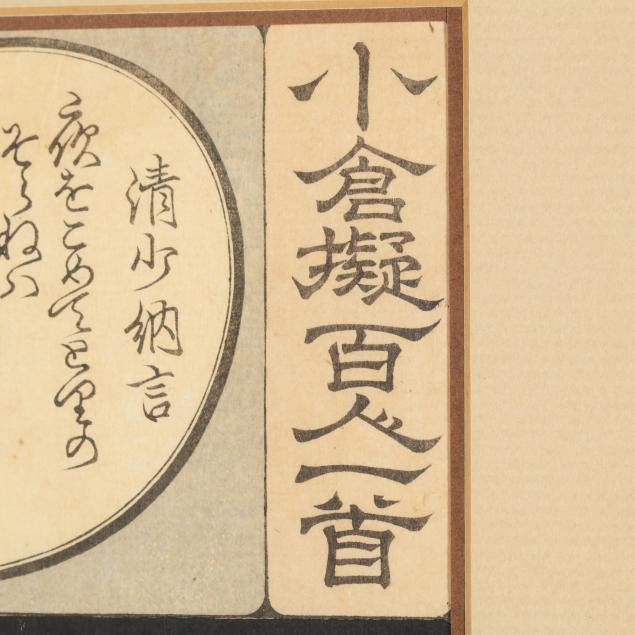 小倉擬百人一首
清少納言
夜をこめてとりの
そらねハ